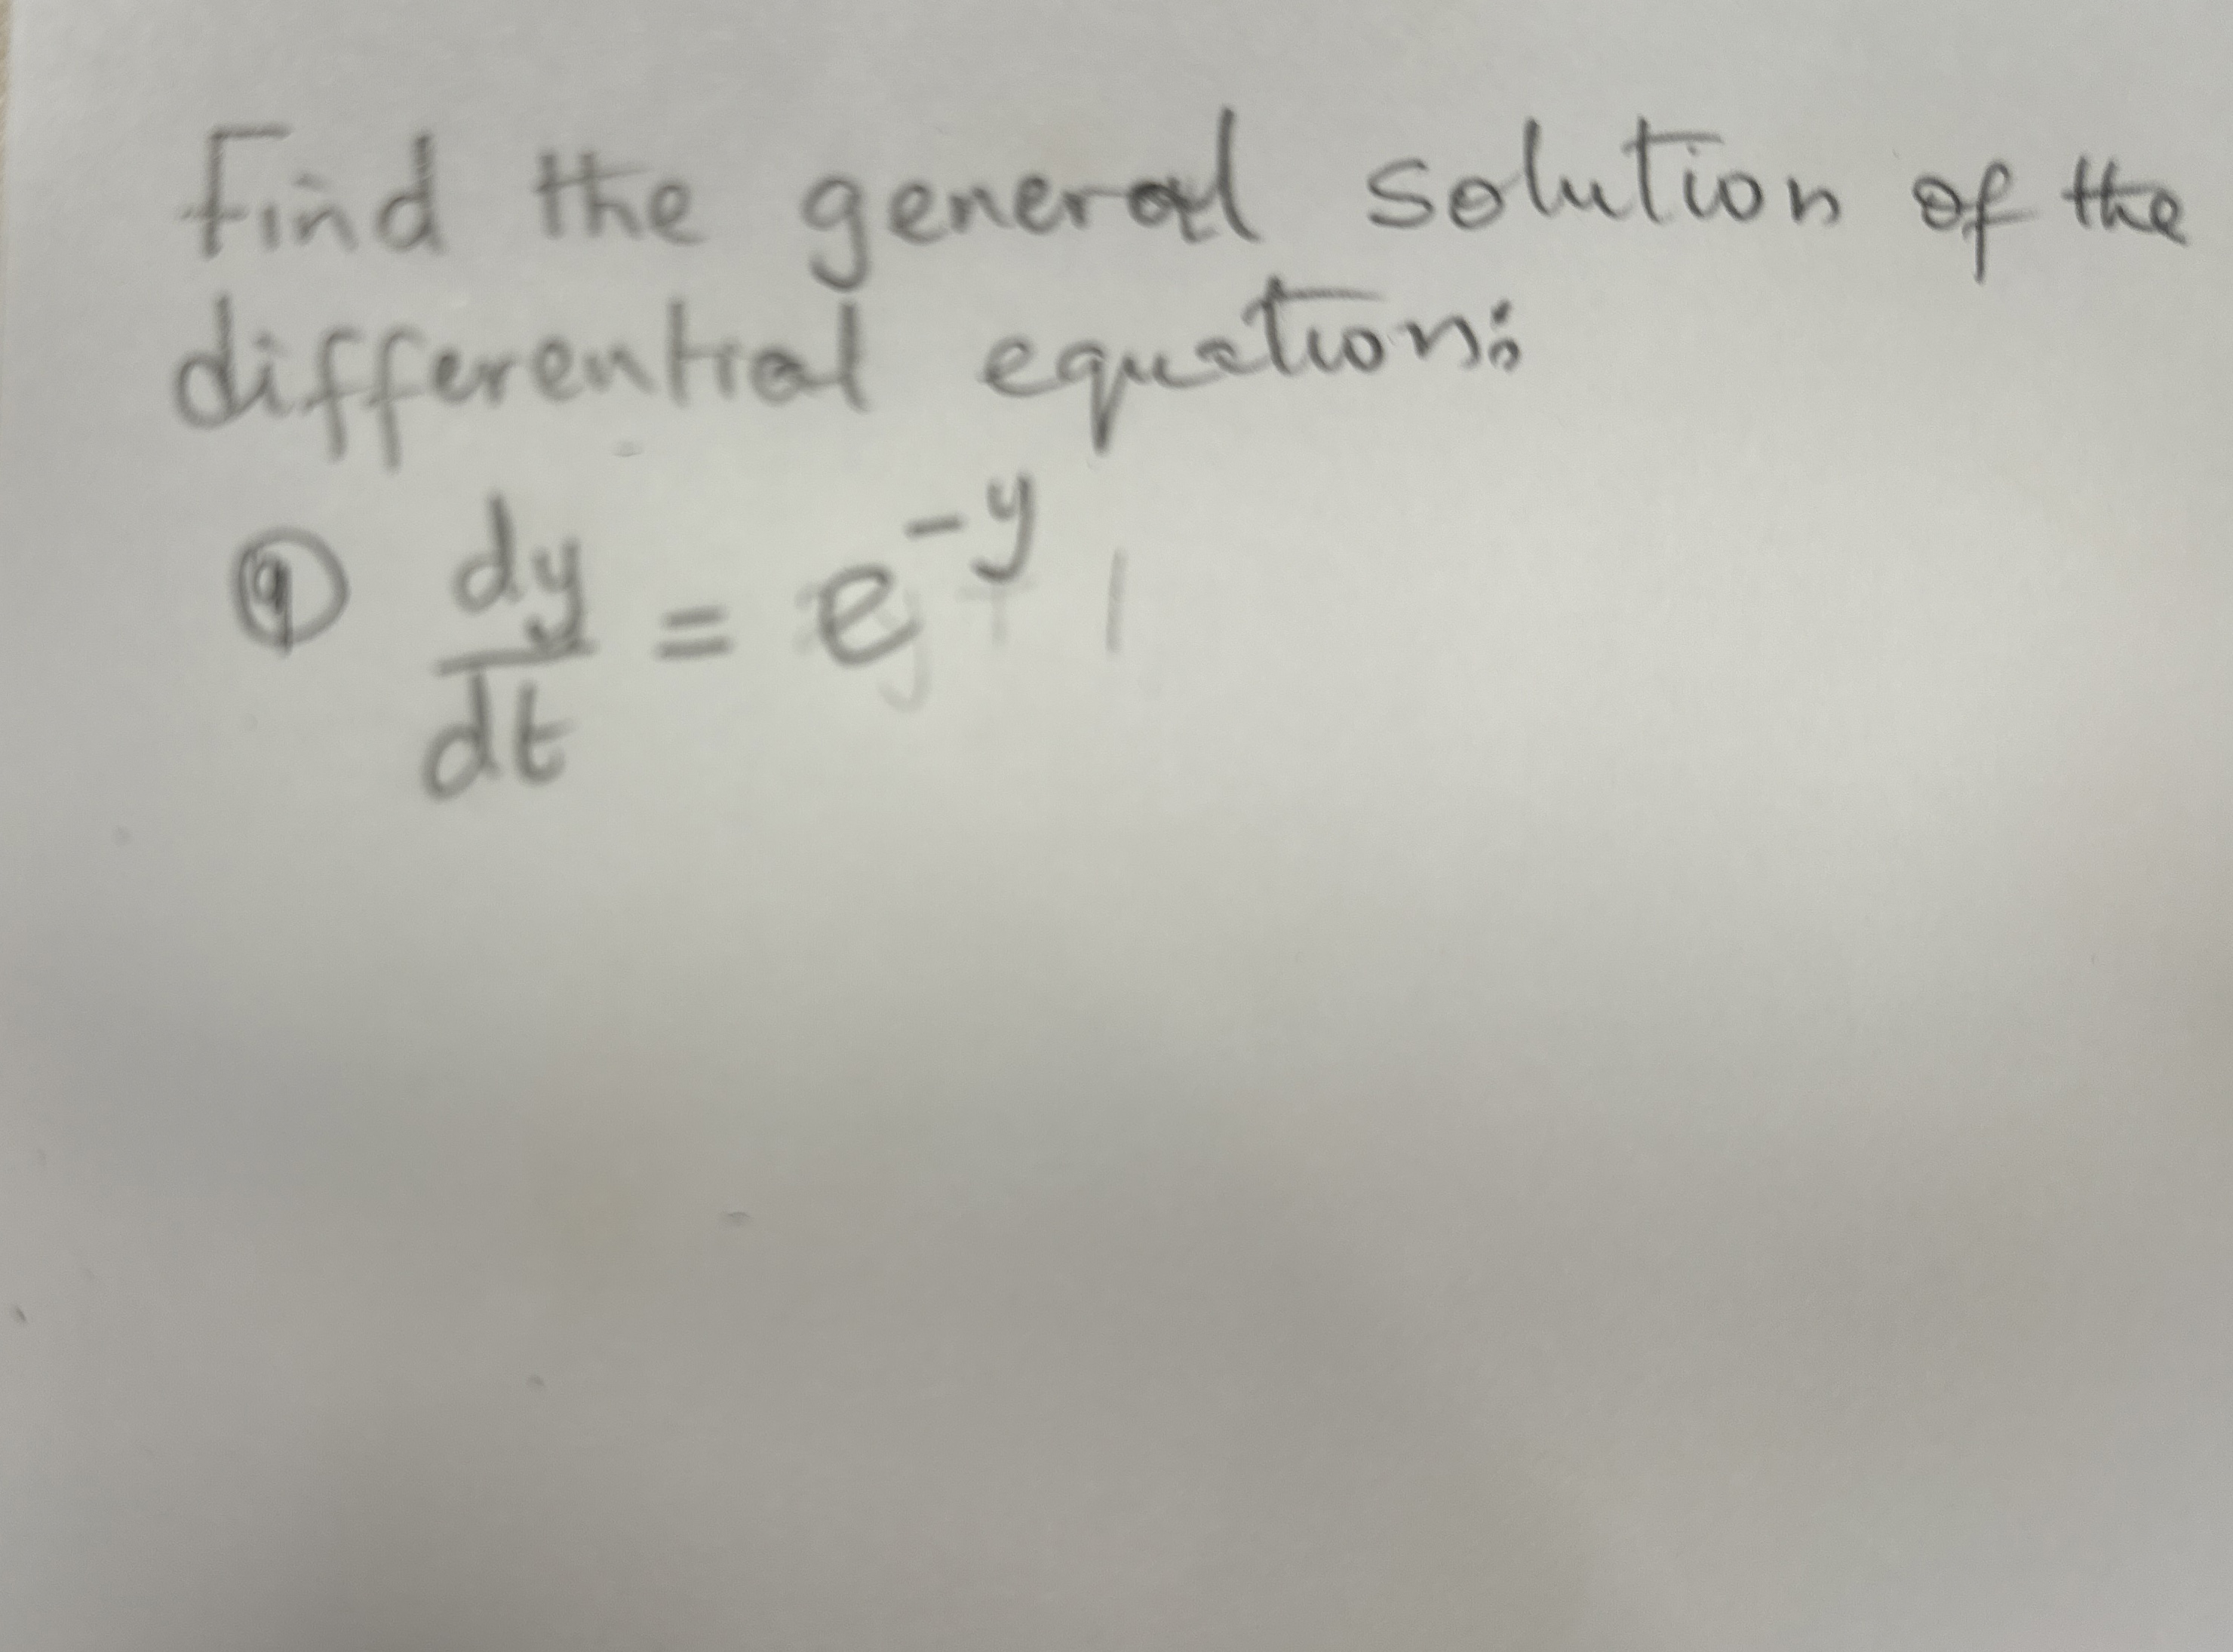 Find the general solution of the
differential equation:
⑨ dy/dt = e^-y